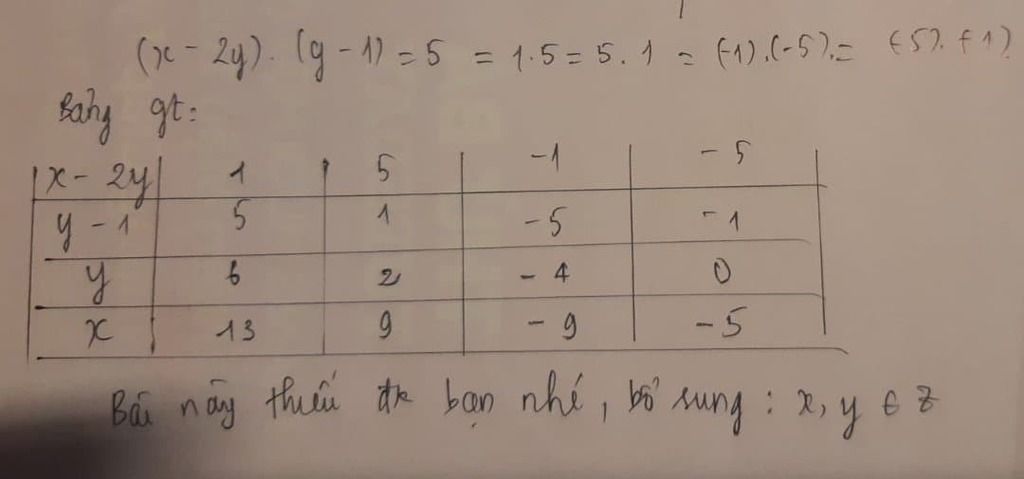 (x - 2y). (y - 1) = 5 = 1.5 = 5.1 = (-1).(-5).= (-5).(-1)
Bảng gt:
x - 2y 1 5 -1 -5
y - 1 5 1 -5 -1
y 6 2 -4 0
x 13 9 -9 -5
Bài này thiếu đk bạn nhé, bổ sung: x, y ∈ Z